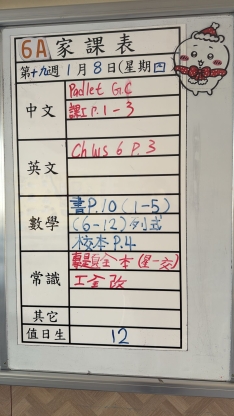 6A 家課表
第十九週 1月8日(星期四
中文
Padlet G.C
課工 P.1-3
英文
Ch WS 6 P.3
數學
書P.10 (1-5)
(6-12) 列式
校本 P.4
常識
全本 (星一交)
工 改
其它
值日生
12